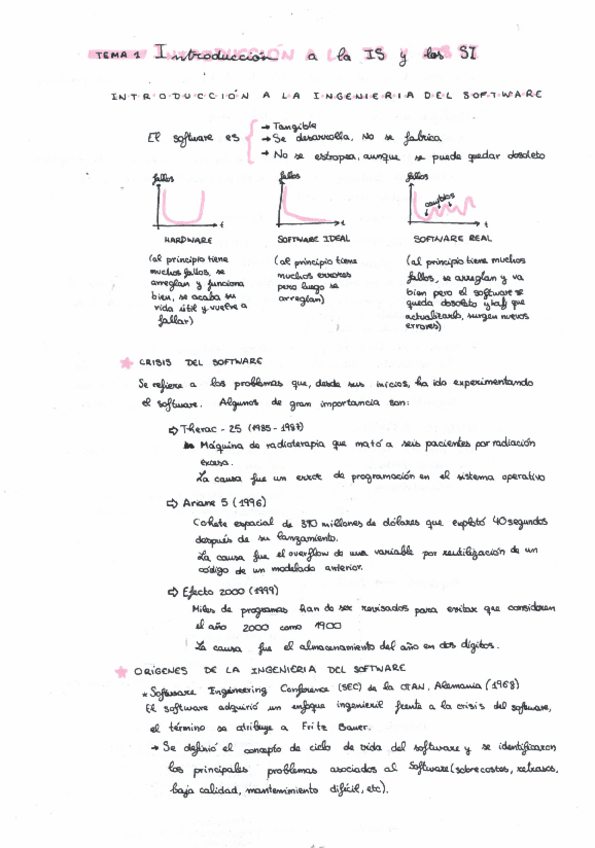 TEMA 1 Introducción a la IS y los SI
INTRODUCCIÓN A LA INGENIERIA DEL SOFTWARE
El software es
→ Tangible
→ Se desarrolla, No se fabrica
→ No se estropea, aunque se puede quedar obsoleto
fallos
t
HARDWARE
(al principio tiene
muchos fallos, se
arreglan y funciona
bien, se acaba su
vida útil y vuelve a
fallar)
fallos
t
SOFTWARE IDEAL
(al principio tiene
muchos errores
pero luego se
arreglan)
fallos
cambios
t
SOFTWARE REAL
(al principio tiene muchos
fallos, se arreglan y va
bien pero el software se
queda obsoleto y al
actualizarlo, surgen nuevos
errores)
CRISIS DEL SOFTWARE
Se refiere a los problemas que, desde sus inicios, ha ido experimentando
el software. Algunos de gran importancia son:
⇒ Therac-25 (1985-1987)
Máquina de radioterapia que mató a seis pacientes por radiación
excesa.
La causa fue un error de programación en el sistema operativo
⇒ Ariane 5 (1996)
Cohete espacial de 370 millones de dólares que explotó 40 segundos
después de su lanzamiento.
La causa fue el overflow de una variable por reutilización de un
código de un modelado anterior.
⇒ Efecto 2000 (1999)
Miles de programas han de ser revisados para evitar que consideren
el año 2000 como 1900
La causa fue el almacenamiento del año en dos dígitos.
ORÍGENES DE LA INGENIERIA DEL SOFTWARE
* Software Engineering Conference (SEC) de la OTAN, Alemania (1968)
El software adquirió un enfoque ingenieril frente a la crisis del software,
el término se atribuye a Fritz Bauer.
→ Se definió el concepto de ciclo de vida del software y se identificaron
los principales problemas asociados al Software (sobrecostes, retrasos,
baja calidad, mantenimiento difícil, etc).